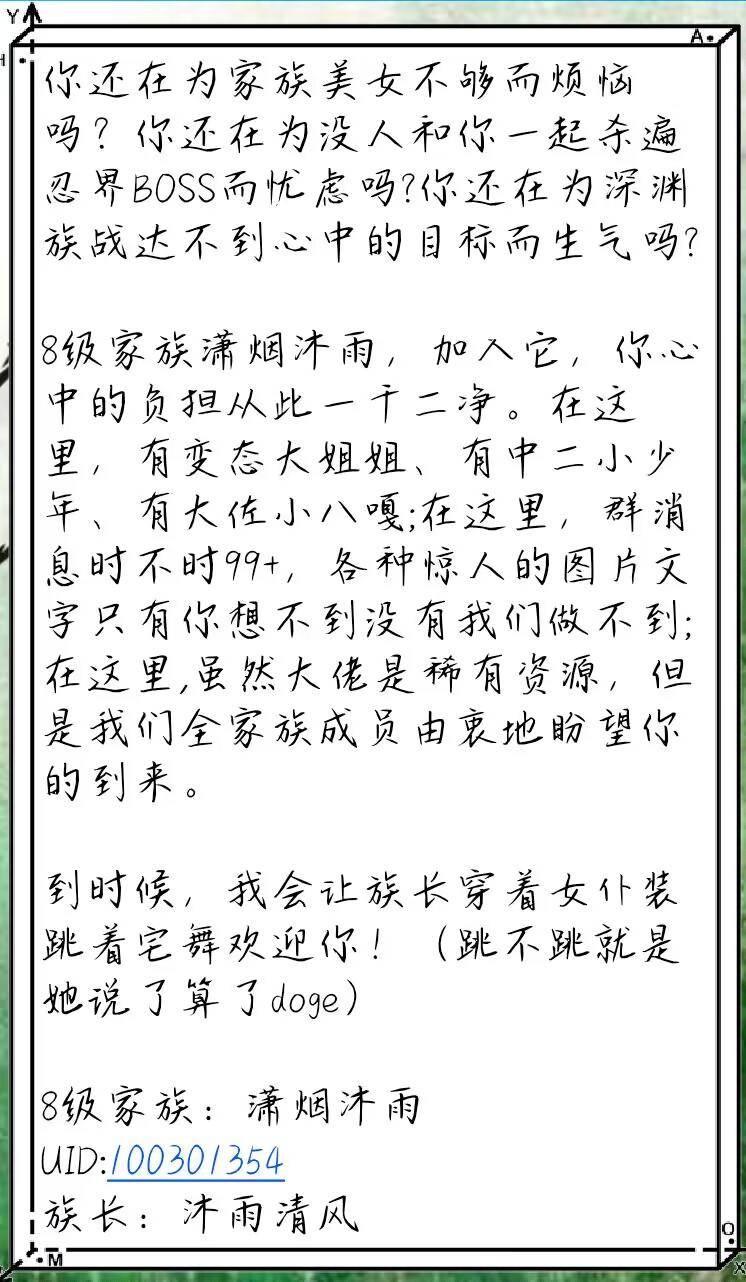 Y
A
H
你还在为家族美女不够而烦恼
吗？你还在为没人和你一起杀遍
忍界BOSS而忧虑吗?你还在为深渊
族战达不到心中的目标而生气吗?
8级家族潇烟沐雨，加入它，你心
中的负担从此一干二净。在这
里，有变态大姐姐、有中二小少
年、有大佐小八嘎;在这里，群消
息时不时99+，各种惊人的图片文
字只有你想不到没有我们做不到;
在这里,虽然大佬是稀有资源，但
是我们全家族成员由衷地盼望你
的到来。
到时候，我会让族长穿着女仆装
跳着宅舞欢迎你！（跳不跳就是
她说了算了doge）
8级家族：潇烟沐雨
UID:100301354
族长：沐雨清风
O
M
X